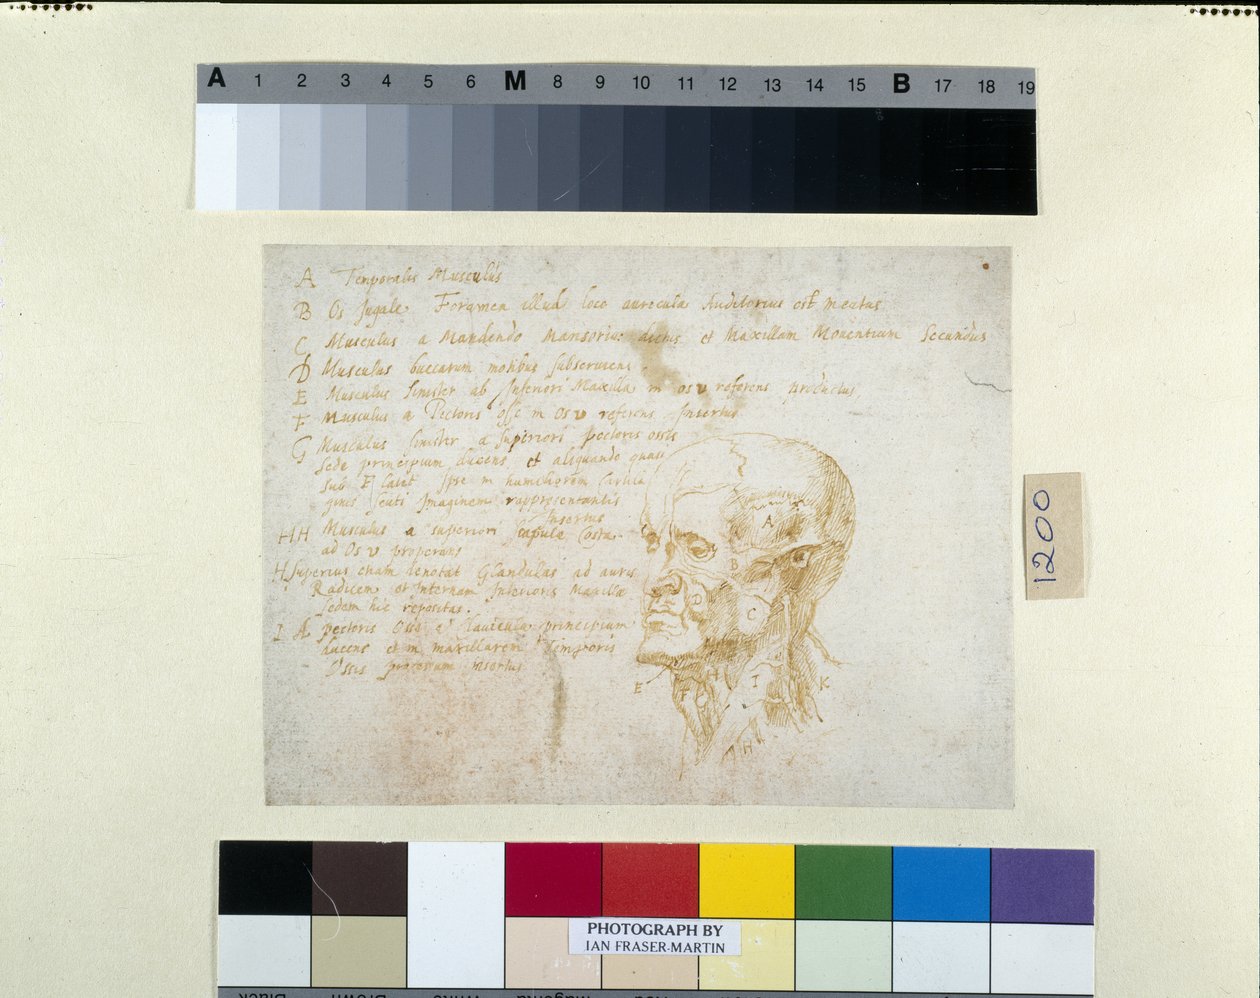 A 1 2 3 4 5 6 M 8 9 10 11 12 13 14 15 B 17 18 19
A Temporalis Musculus
B Os Jugale Foramen illud loco auricula Auditorius est meatus
C Musculus a Mandendo Mansorius dictus et Maxillam Mouentium Secundus
D Musculus buccarum motibus subseruiens
E Musculus sinister ab Inferiori Maxilla in os υ referens productus,
F Musculus a Pectoris osse in os υ referens Insertus
G Musculus sinister a superiori pectoris ossis
sede principium ducens et aliquando quasi
sub F latit Ipse in humiliorem
ginis scuti Imaginem rappresentantis
Insertus
HH Musculus a superiori scapulæ Costa
ad Os υ properans
H Superius etiam denotat Glandulas ad auris
Radicem et Internam Inferioris Maxillæ
sedem hic repositas.
I A pectoris Osse a Clauicula principium
ducens et in maxillarem Temporis
Ossis processum insertus
A
B
D
C
E
F
H
I
K
H
1200
PHOTOGRAPH BY
IAN FRASER-MARTIN
Black Brown White Magenta Red